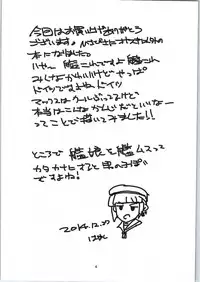 今回はお買い上げありがとう
ございます。ひさびさにオリ以外の
本になりました。
いやー艦これですよ艦これ
みんなかわいいけどやっぱ
ドイツですよね、ドイツ
マックスはクールぶってるけど
本当はこんなかんじだといいなー
ってことで描いてみました!!
ところで艦娘と艦ムスって
カタカナにすると男のみぽい
ですよね!
2014.12.27
4